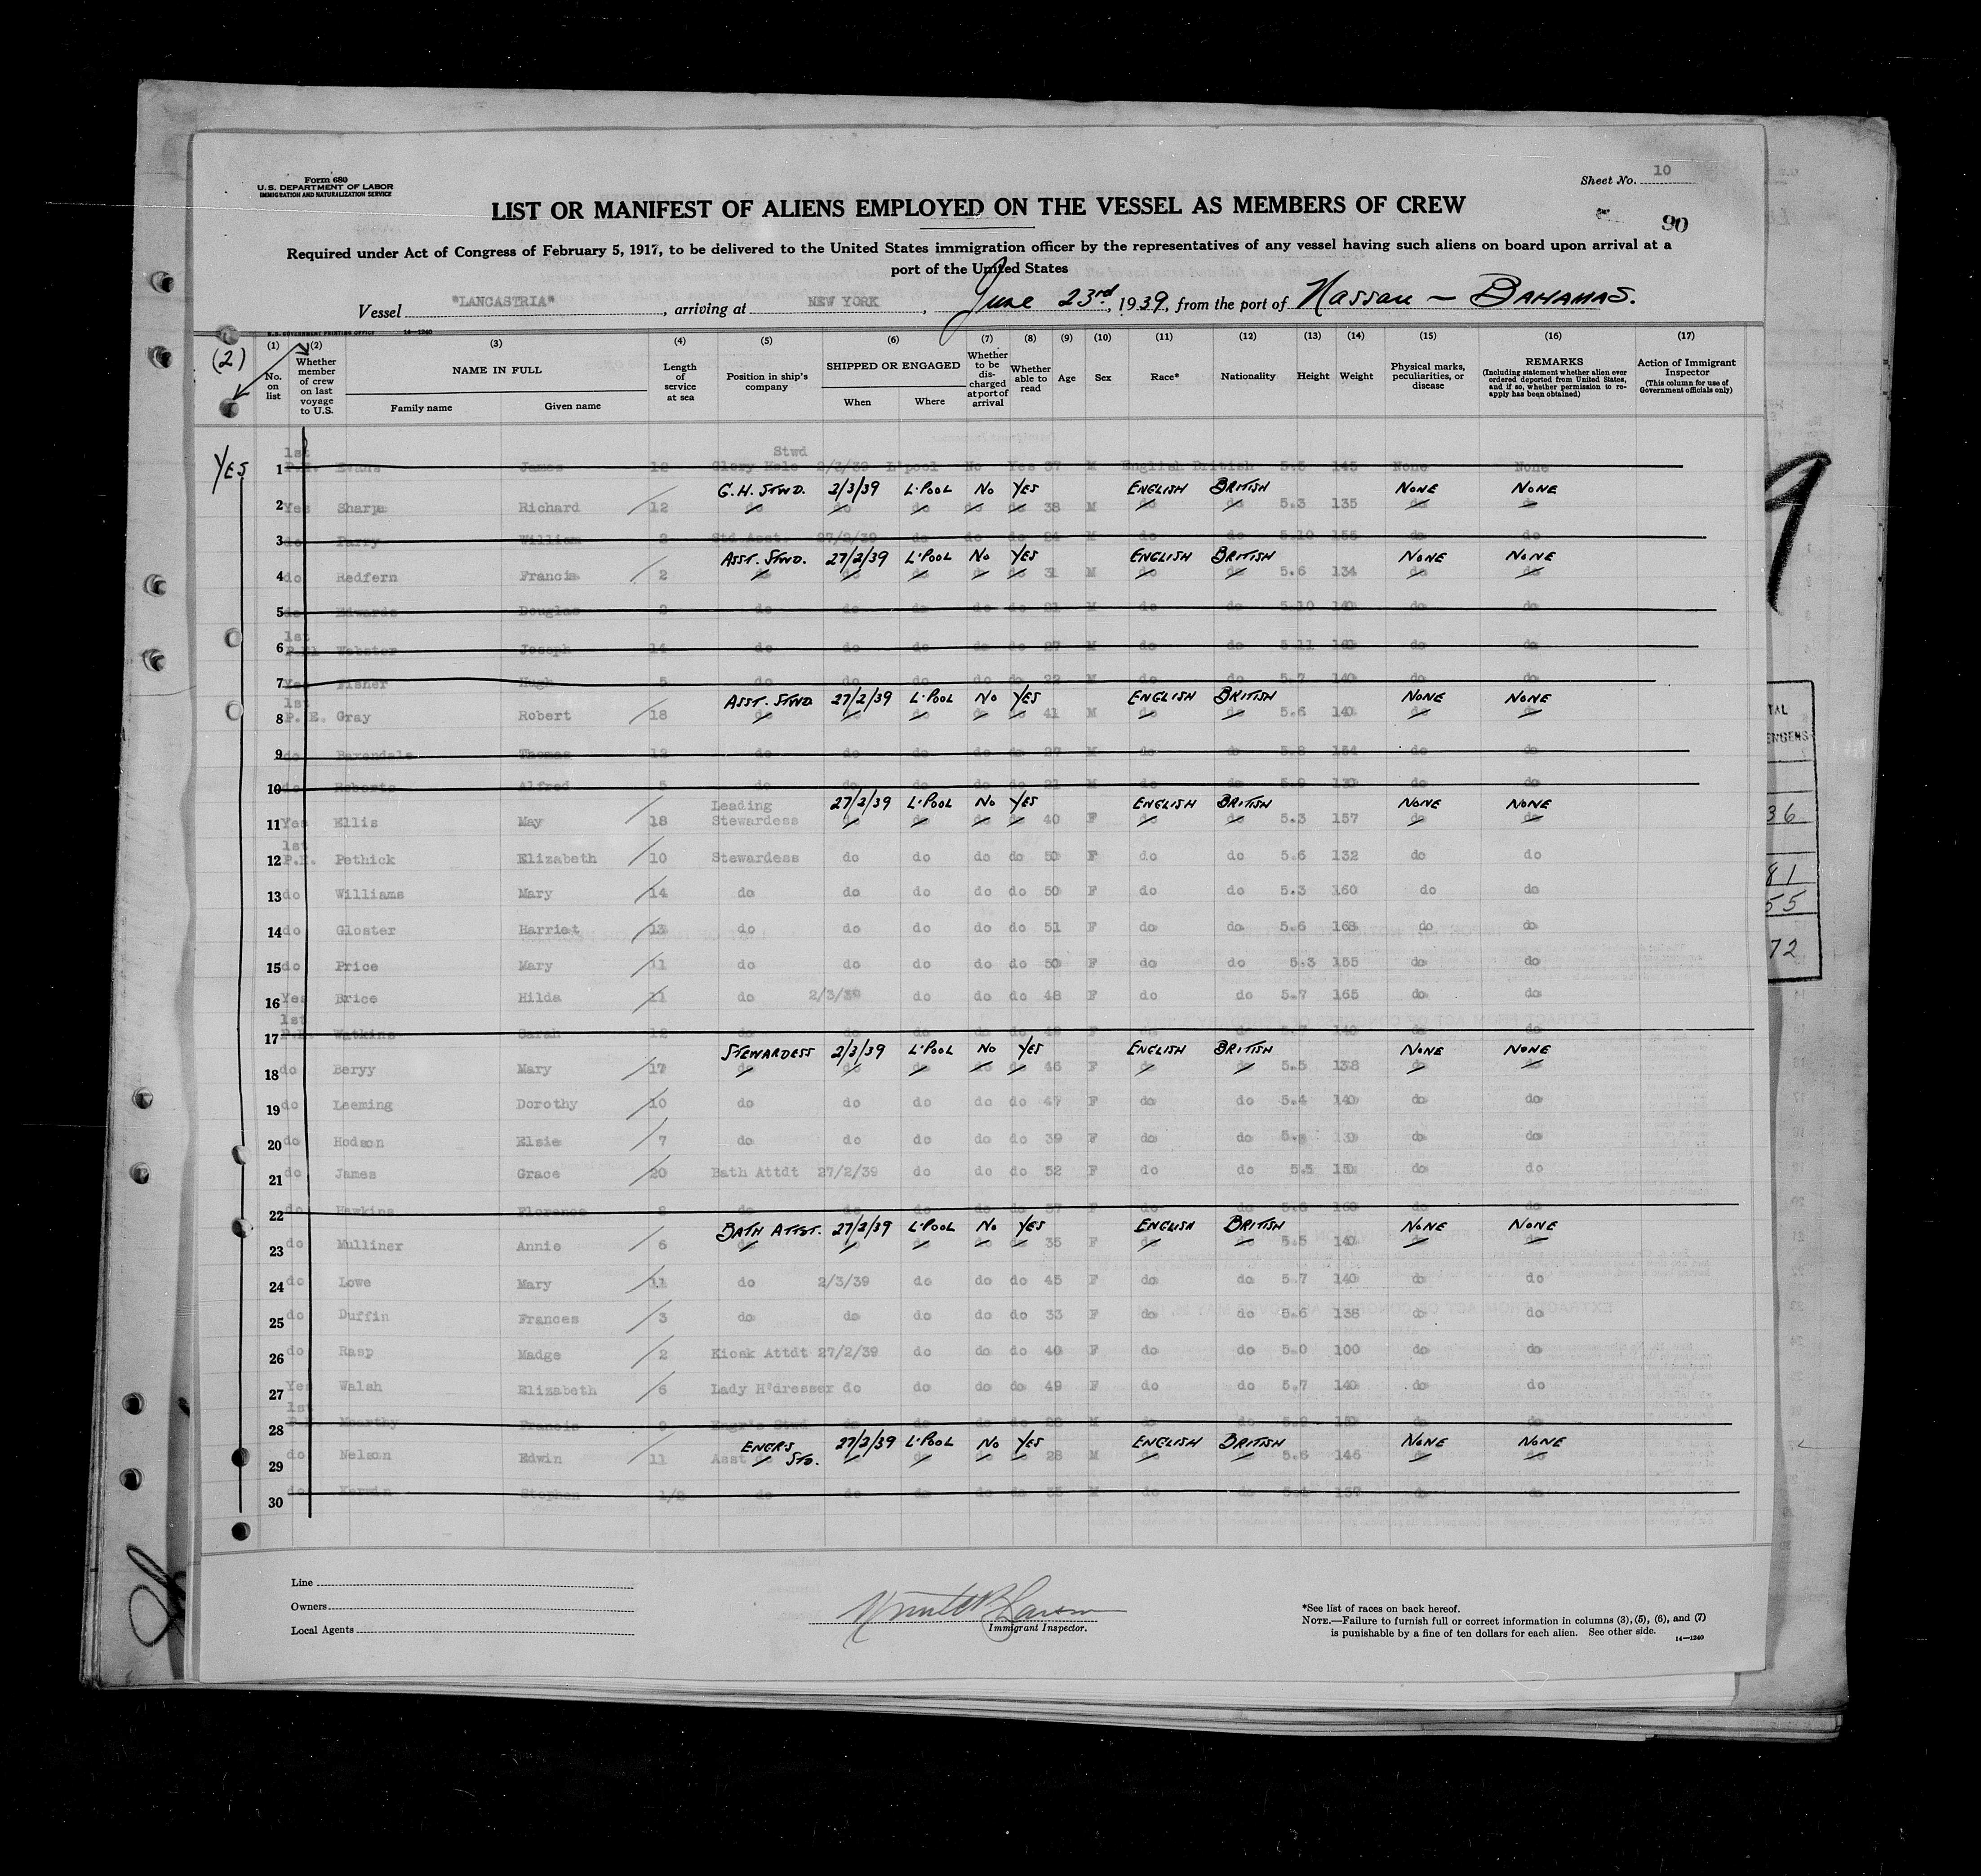 Form 680
U.S. DEPARTMENT OF LABOR
IMMIGRATION AND NATURALIZATION SERVICE
Sheet No. 10
LIST OR MANIFEST OF ALIENS EMPLOYED ON THE VESSEL AS MEMBERS OF CREW
90
Required under Act of Congress of February 5, 1917, to be delivered to the United States immigration officer by the representatives of any vessel having such aliens on board upon arrival at a
port of the United States
Vessel "LANCASTRIA", arriving at NEW YORK, June 23rd, 1939, from the port of Nassau — BAHAMAS.
U.S. GOVERNMENT PRINTING OFFICE 14—1240
(1) (2) (3) (4) (5) (6) (7) (8) (9) (10) (11) (12) (13) (14) (15) (16) (17)
(2) No. on list Whether member of crew on last voyage to U.S. NAME IN FULL Family name Given name Length of service at sea Position in ship's company SHIPPED OR ENGAGED When Where Whether to be discharged at port of arrival Whether able to read Age Sex Race* Nationality Height Weight Physical marks, peculiarities, or disease REMARKS (Including statement whether alien ever ordered deported from United States, and if so, whether permission to reapply has been obtained) Action of Immigrant Inspector (This column for use of Government officials only)
YES
1st Stwd
1 P.E. Evans James Glory Hole 2/3/39 L'pool No Yes 37 M English British 5.5 145 None None
G.H. STWD. 2/3/39 L'POOL NO YES ENGLISH BRITISH NONE NONE
2 Yes Sharpe Richard 12 do do do do do 38 M do do 5.3 135 do do
3 do Parry William 2 Std.Asst. 27/2/39 do do do 24 M do do 5.10 155 do do
ASST. STWD. 27/2/39 L'POOL NO YES ENGLISH BRITISH NONE NONE
4 do Redfern Francis 2 do do do do do 31 M do do 5.6 134 do do
5 do Edwards Douglas 2 do do do do do 21 M do do 5.10 140 do do
1st
6 P.E. Webster Joseph 14 do do do do do 27 M do do 5.11 160 do do
7 Yes Fisher Hugh 5 do do do do do 22 M do do 5.7 140 do do
1st ASST. STWD 27/2/39 L'POOL NO YES ENGLISH BRITISH NONE NONE
8 P.E. Gray Robert 18 do do do do do 41 M do do 5.6 140 do do
9 do Baxendale Thomas 12 do do do do do 27 M do do 5.8 154 do do
10 do Roberts Alfred 5 do do do do do 21 M do do 5.9 130 do do
Leading 27/2/39 L'POOL NO YES ENGLISH BRITISH NONE NONE
11 Yes Ellis May 18 Stewardess do do do do 40 F do do 5.3 157 do do
1st
12 P.E. Pethick Elizabeth 10 Stewardess do do do do 50 F do do 5.6 132 do do
13 do Williams Mary 14 do do do do do 50 F do do 5.3 160 do do
14 do Gloster Harriet 13 do do do do do 51 F do do 5.6 168 do do
15 do Price Mary 11 do do do do do 50 F do do 5.3 155 do do
16 Yes Brice Hilda 11 do 2/3/39 do do do 48 F do do 5.7 165 do do
1st
17 P.E. Watkins Sarah 12 do do do do do 49 F do do 5.7 140 do do
STEWARDESS 2/3/39 L'POOL NO YES ENGLISH BRITISH NONE NONE
18 do Beryy Mary 17 do do do do do 46 F do do 5.5 138 do do
19 do Leeming Dorothy 10 do do do do do 47 F do do 5.4 140 do do
20 do Hodson Elsie 7 do do do do do 39 F do do 130 do do
21 do James Grace 20 Bath Attdt 27/2/39 do do do 52 F do do 5.5 150 do do
22 do Hawkins Florence 8 do do do do do 37 F do do 5.6 160 do do
BATH ATTDT. 27/2/39 L'POOL NO YES ENGLISH BRITISH NONE NONE
23 do Mulliner Annie 6 do do do do do 35 F do do 5.5 140 do do
24 do Lowe Mary 11 do 2/3/39 do do do 45 F do do 5.7 140 do do
25 do Duffin Frances 3 do do do do do 33 F do do 5.6 138 do do
26 do Rasp Madge 2 Kiosk Attdt 27/2/39 do do do 40 F do do 5.0 100 do do
27 Yes Walsh Elizabeth 6 Lady H'dresser do do do do 49 F do do 5.7 140 do do
1st
28 P.E. Francis 9 Engr's Stwd do do do do M do do 150 do do
ENGR'S STD. 27/2/39 L'POOL NO YES ENGLISH BRITISH NONE NONE
29 do Nelson Edwin 11 Asst do do do do do 28 M do do 5.6 146 do do
30 do Kerwin Stephen 1/2 do do do do do 35 M do do 137 do do
Line
Owners
Local Agents
Immigrant Inspector.
*See list of races on back hereof.
NOTE.—Failure to furnish full or correct information in columns (3), (5), (6), and (7)
is punishable by a fine of ten dollars for each alien. See other side.
14—1240
9
TAL
ENGERS
36
81
55
72